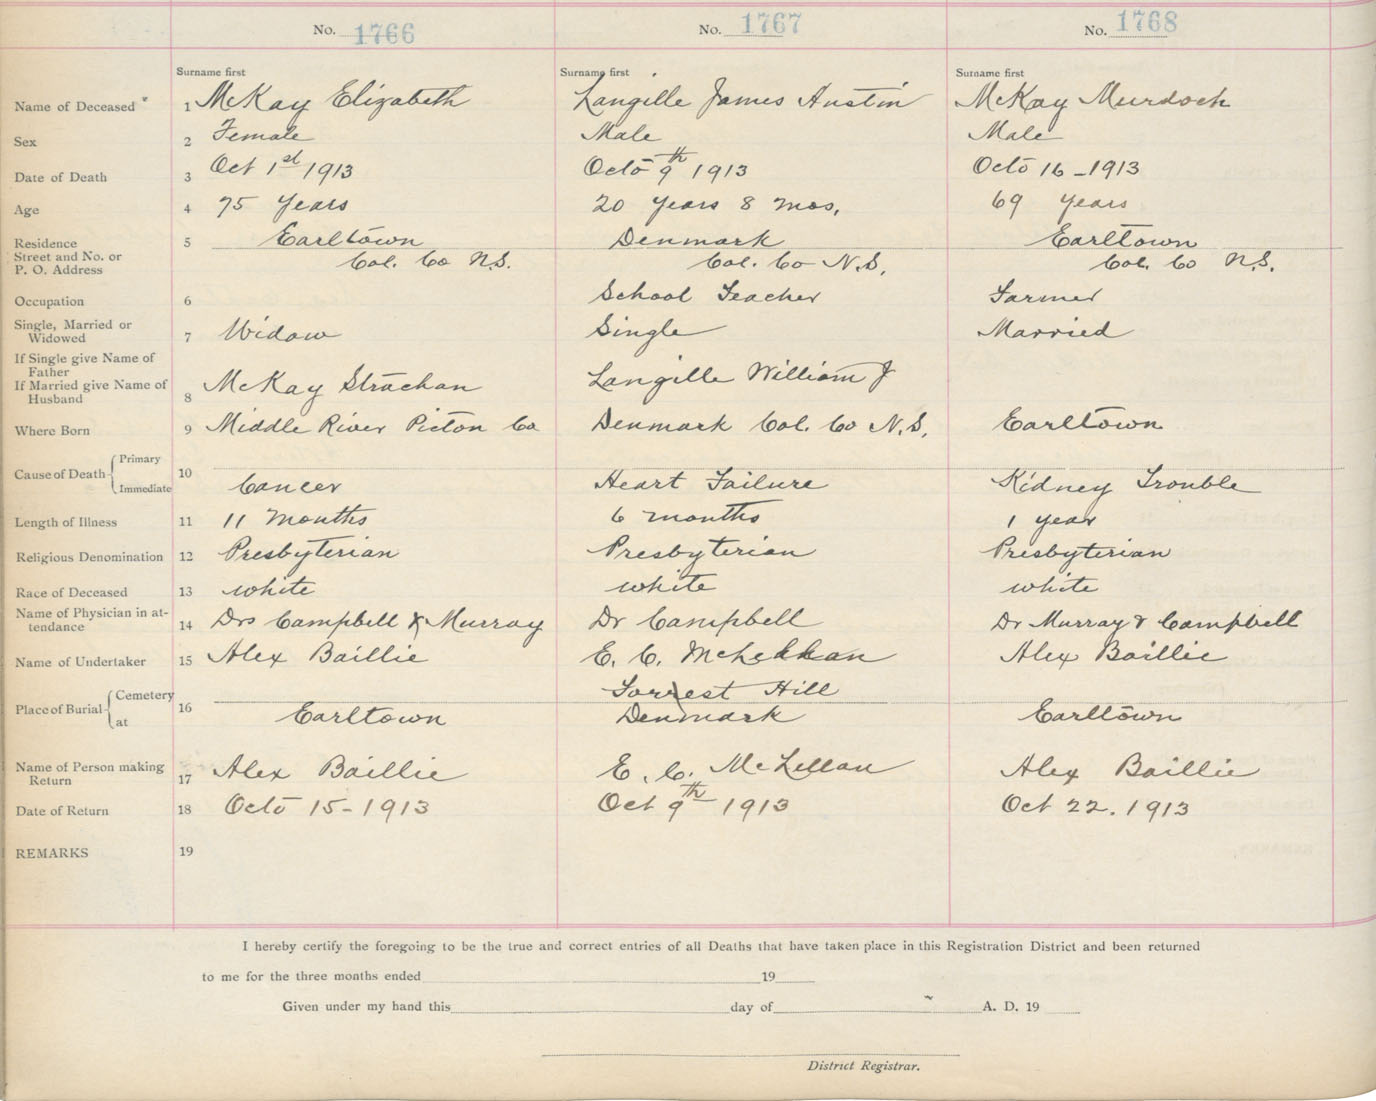 No. 1766 No. 1767 No. 1768
Surname first Surname first Surname first
Name of Deceased 1 McKay Elizabeth Langille James Austin McKay Murdoch
Sex 2 Female Male Male
Date of Death 3 Oct 1st 1913 Octo 9th 1913 Octo 16 - 1913
Age 4 75 years 20 years 8 mos. 69 years
Residence 5 Earltown Denmark Earltown
Street and No. or
P. O. Address Col. Co N.S. Col. Co N.S. Col. Co N.S.
Occupation 6 School Teacher Farmer
Single, Married or
Widowed 7 Widow Single Married
If Single give Name of
Father
If Married give Name of
Husband 8 McKay Strachan Langille William J
Where Born 9 Middle River Picton Co Denmark Col. Co N.S. Earltown
Cause of Death { Primary 10
Immediate Cancer Heart Failure Kidney Trouble
Length of Illness 11 11 Months 6 months 1 year
Religious Denomination 12 Presbyterian Presbyterian Presbyterian
Race of Deceased 13 white white white
Name of Physician in at-
tendance 14 Drs Campbell & Murray Dr Campbell Dr Murray & Campbell
Name of Undertaker 15 Alex Baillie E. C. Alex Baillie
Place of Burial { Cemetery 16 Forrest Hill
at Earltown Denmark Earltown
Name of Person making
Return 17 Alex Baillie E. C. McLellan Alex Baillie
Date of Return 18 Octo 15 - 1913 Oct 9th 1913 Oct 22. 1913
REMARKS 19
I hereby certify the foregoing to be the true and correct entries of all Deaths that have taken place in this Registration District and been returned
to me for the three months ended 19
Given under my hand this day of A. D. 19
District Registrar.